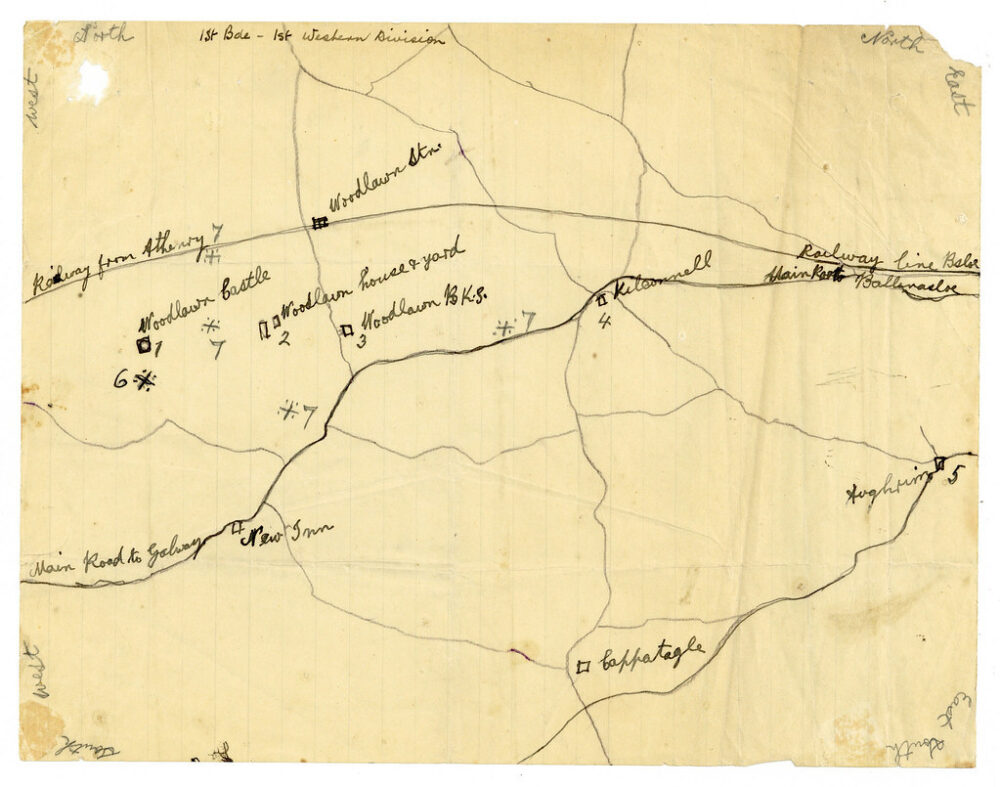 North
1st Bde - 1st Western Division
North
West
East
Woodlawn Stn.
Railway from Athenry
7
Railway line Bsloe
Main Road Ballinasloe
Woodlawn Castle
1
Woodlawn house & yard
2
Woodlawn B.K.S.
3
Kilconnell
4
7
7
6
7
Aughrim
5
Main Road to Galway
New Inn
Cappatagle
West
East
South
South